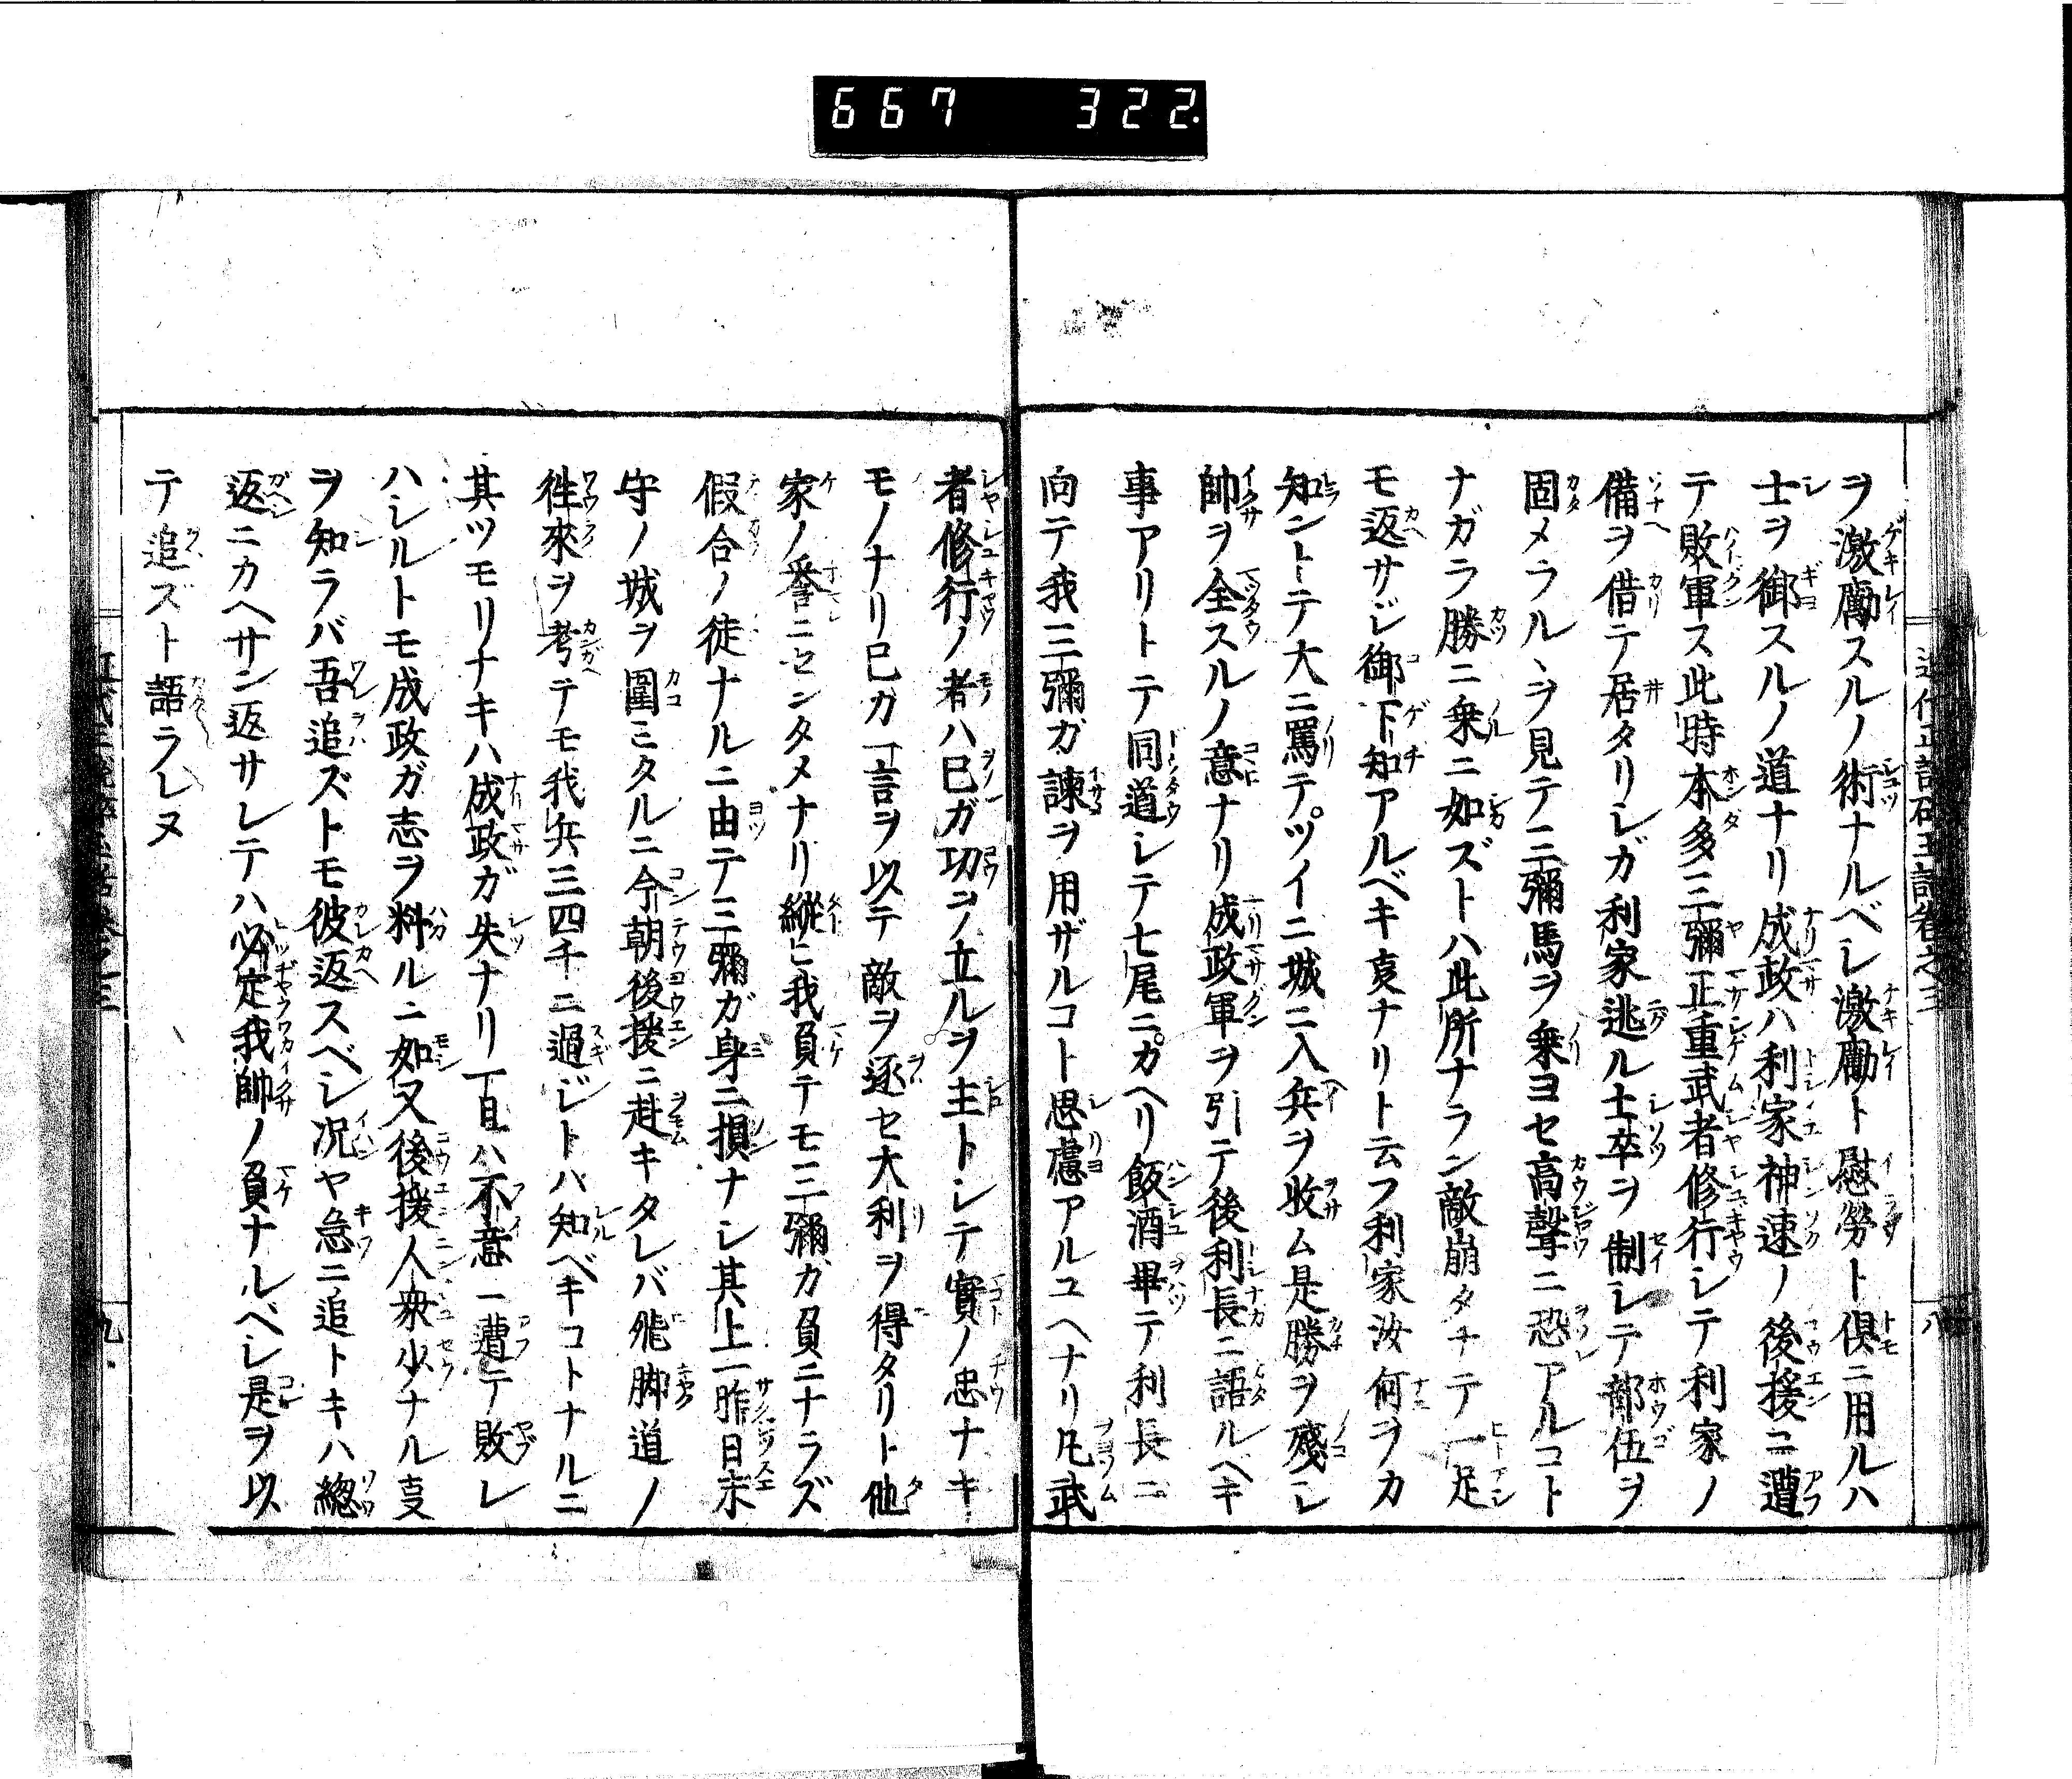 667 322.
ヲ激勵スルノ術ナルベシ激勵ト慰勞ト倶ニ用ルハ
士ヲ御スルノ道ナリ成政ハ利家神速ノ後援ニ遭
テ敗軍ス此時本多三彌正重武者修行シテ利家ノ
備ヲ借テ居タリシガ利家逃ル士卒ヲ制シテ部伍ヲ
固メラルヽヲ見テ三彌馬ヲ乗ヨセ高聲ニ恐アルコト
ナガラ勝ニ乗ニ如ズトハ此所ナラン敵崩タチテ一足
モ返サジ御下知アルベキ叓ナリト云フ利家汝何ヲカ
知ントテ大ニ罵テツイニ城ニ入兵ヲ收ム是勝ヲ殘シ
帥ヲ全スルノ意ナリ成政軍ヲ引テ後利長ニ語ルヘキ
事アリトテ同道シテ七尾ニカヘリ飯酒畢テ利長ニ
向テ我三彌ガ諫ヲ用ザルコト思慮アルユヘナリ凡武
八
者修行ノ者ハ已ガ功ヲノ立ルヲ主トシテ實ノ忠ナキ
モノナリ已カ一言ヲ以テ敵ヲ逐セ大利ヲ得タリト他
家ノ誉ニセンタメナリ縱ヒ我負テモ三彌カ負ニナラズ
假合ノ徒ナルニ由テ三彌ガ身ニ損ナシ其上一昨日末
守ノ城ヲ圍ミタルニ今朝後援ニ赴キタレバ飛脚道ノ
徃來ヲ考テモ我兵三四千ニ過ジトハ知ベキコトナルニ
其ツモリナキハ成政ガ失ナリ一旦ハ不意ニ遭テ敗レ
ハシルトモ成政ガ志ヲ料ルニ如又後援人衆少ナル叓
ヲ知ラバ吾追ズトモ彼返スベシ况ヤ急ニ追トキハ總
返ニカヘサン返サレテハ必定我帥ノ負ナルベシ是ヲ以
テ追ズト語ラレヌ
九